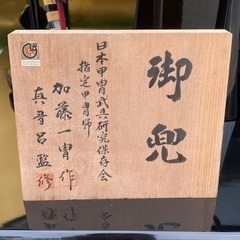 御兜
日本甲冑武具研究保存会
指定甲冑師
加藤一冑作
真音呂監修